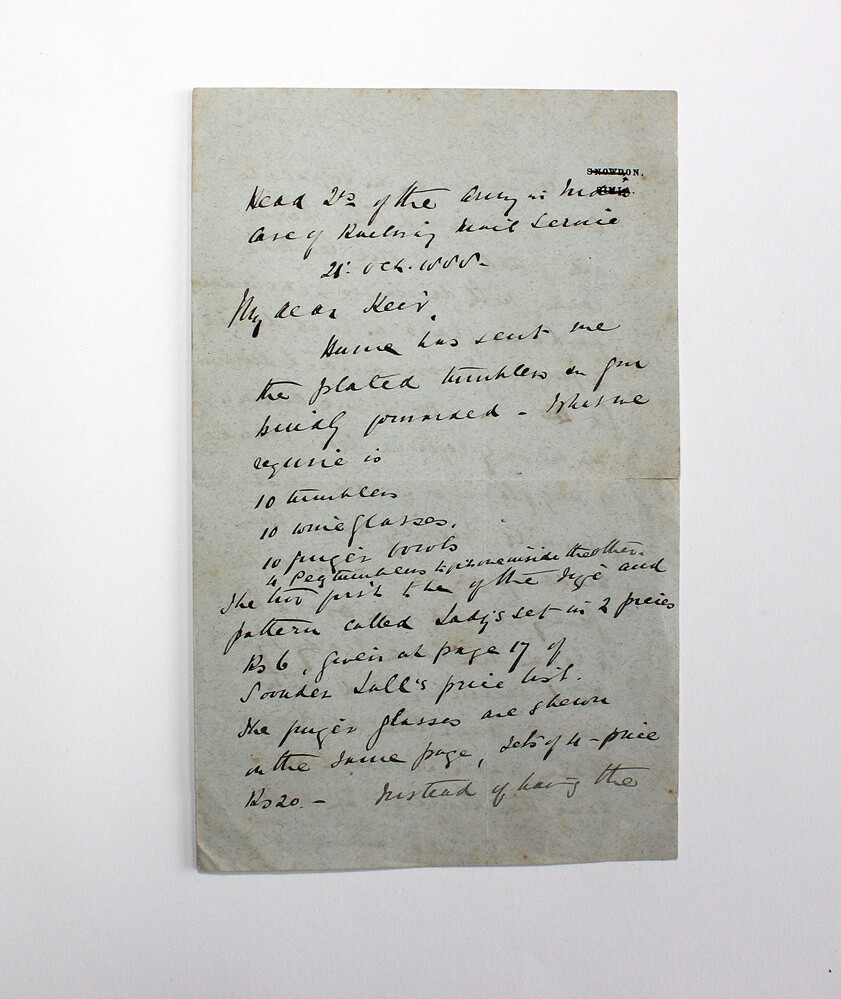 SNOWDON.
SIMLA.
Head Qrs of the Army in India
care of Railway Mail Service
21st Oct. 1888.
My dear Keir,
Hume has sent me
the plated tumblers you
kindly forwarded - What we
require is
10 tumblers
10 wine glasses.
10 finger bowls
4 Peg tumblers to go one inside the other.
The two first to be of the size and
pattern called Lady's set in 2 pieces
Rs 6, given at page 17 of
Soonder Lall's price list.
The finger glasses are shewn
on the same page, sets of 4 - price
Rs 20. - Instead of having the